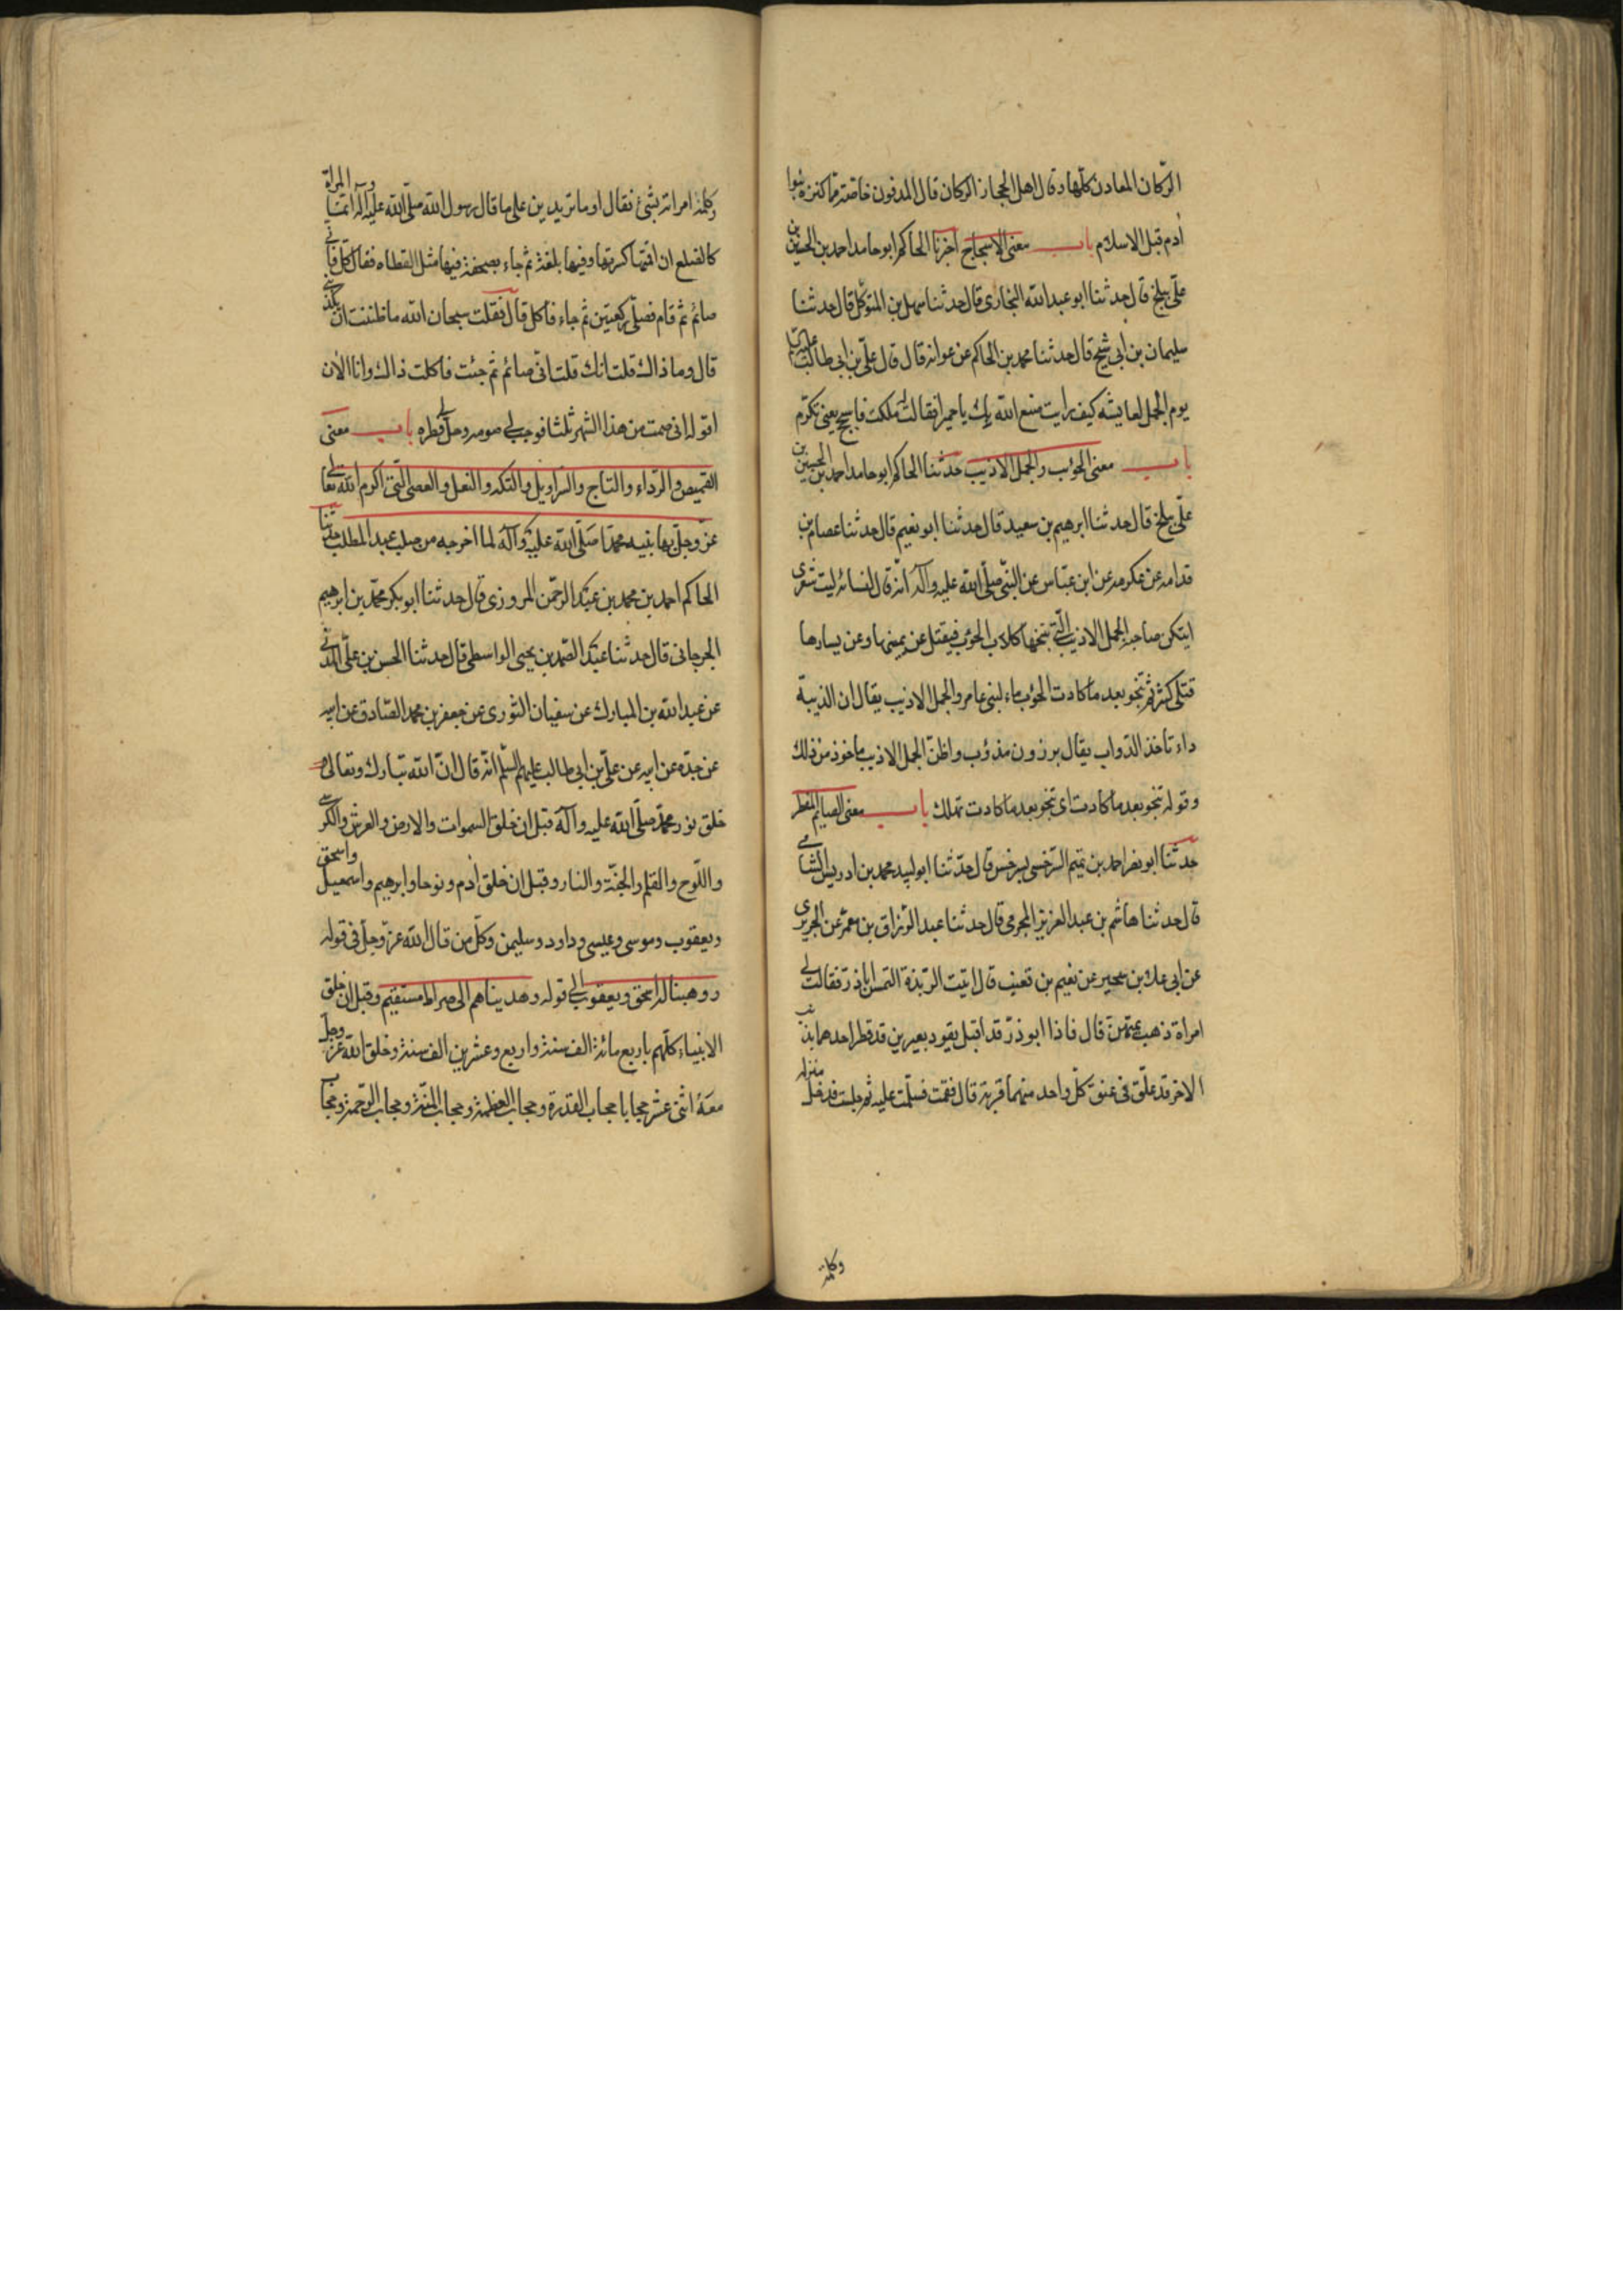 الركان المعادن كلها وقال اهل الحجاز الركان قال المدفون خاصة مما كنزه بنوا
آدم قبل الاسلام باب معنى الاسجاح اخبرنا الحاكم ابو حامد احمد بن الحسين بن
علي ببلخ قال حدثنا ابو عبدالله البخاري قال حدثنا سهل بن المتوكل قال حدثنا
سليمان بن ابي شيخ قال حدثنا محمد بن الحاكم عن عوانه قال قال علي بن ابي طالب
يوم الجمل لعايشه كيف رايت صنع الله بك يا حميرا فقالت له ملكت فاسجح يعني تكرم
باب معنى الحوئب والجمل الاذيب حدثنا الحاكم ابو حامد احمد بن الحسين بن
علي ببلخ قال حدثنا ابرهيم بن سعيد قال حدثنا ابو نعيم قال حدثنا عصام بن
قدامه عن عكرمه عن ابن عباس عن النبي صلى الله عليه وآله انه قال لنسائه ليت شعري
ايتكن صاحبه الجمل الاذيب التي تنبحها كلاب الحوئب فيقتل عن يمينها وعن يسارها
قتلى كثير ثم تنجو بعد ما كادت الحوئب ماء لبني عامر والجمل الاذيب يقال ان الذيبة
داء تاخذ الدواب يقال برزون مذؤب واظن الجمل الاذيب ماخوذ من ذلك
وقوله تنجو بعد ما كادت اى تنجو بعد ما كادت تهلك باب معنى الصيايم المفطر
حدثنا ابو نصر احمد بن تميم السرخسي بسرخس قال حدثنا ابو لبيد محمد بن ادريس الشامي
قال حدثنا هاشم بن عبد العزيز المخرمي قال حدثنا عبد الرزاق بن معمر عن الجريري
عن ابي علك بن سحير عن نعيم بن قعنب قال اتيت الربذة التمس اباذر فقالت لي
امراة ذهب يمتهن قال فاذا ابو ذر قد اقبل يقود بعيرين قد قطر احدهما بذنب
الاخر قد علق في عنق كل واحد منهما قربة قال فقمت فسلمت عليه ثم جلست فدخل منزله
وكلمته
وكلمته امراته بشئ فقال او ما تريدين على ما قال رسول الله صلى الله عليه وآله انما المراة
كالضلع ان اقمتها كسرتها وفيها بلغة ثم جاء بصحفة فيها مثل القطاه فقال كل فاني
صائم ثم قام فصلى ركعتين ثم جاء فاكل قال فقلت سبحان الله ما ظننت ان تكذبني
قال وما ذاك قلت انك قلت اني صائم ثم جئت فاكلت ذاك وانا الان
اقوله اني صمت من هذا الشهر ثلثا فوجب لي صومه وحل لي فطره باب معنى
القميص والرداء والتاج والسراويل والتكه والنعل والعصى التي اكرم الله تعالى
عز وجل بها نبيه محمدا صلى الله عليه وآله لما اخرجه من صلب عبد المطلب حدثنا
الحاكم احمد بن محمد بن عبد الرحمن المروزي قال حدثنا ابو بكر محمد بن ابرهيم
الجرجاني قال حدثنا عبد الصمد بن يحيى الواسطي قال حدثنا الحسن بن علي المدني
عن عبد الله بن المبارك عن سفيان الثوري عن جعفر بن محمد الصادق عن ابيه
عن جده عن ابيه عن علي بن ابي طالب عليهم السلم انه قال ان الله تبارك وتعالى
خلق نور محمد صلى الله عليه وآله قبل ان خلق السموات والارض والعرش والكرسي
واللوح والقلم والجنة والنار وقبل ان خلق آدم ونوحا وابرهيم واسمعيل واسحق
ويعقوب وموسى وعيسى وداود وسليمن وكل من قال الله عز وجل في قوله
ووهبنا له اسحق ويعقوب الى قوله وهديناهم الى صراط مستقيم وقبل ان خلق
الانبياء كلهم باربع مائة الف سنة واربع وعشرين الف سنة وخلق الله عز وجل
معه اثنى عشر حجابا حجاب القدرة وحجاب العظمة وحجاب المنة وحجاب الرحمة وحجاب